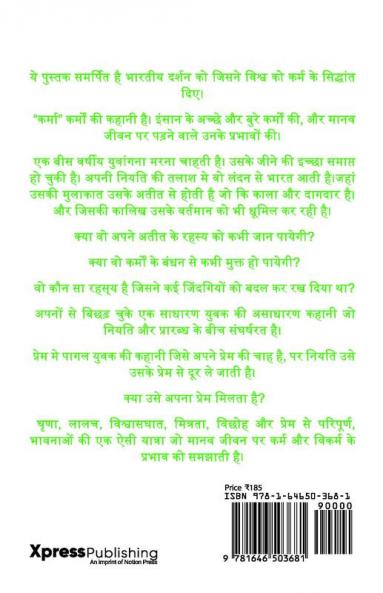 ये पुस्तक समर्पित है भारतीय दर्शन को जिसने विश्व को कर्म के सिद्धांत
दिए।
"कर्मा" कर्मों की कहानी है। इंसान के अच्छे और बुरे कर्मों की, और मानव
जीवन पर पड़ने वाले उनके प्रभावों की।
एक बीस वर्षीय युवांगना मरना चाहती है। उसके जीने की इच्छा समाप्त
हो चुकी है। अपनी नियति की तलाश मे वो लंदन से भारत आती है।जहां
उसकी मुलाकात उसके अतीत से होती है जो कि काला और दागदार है।
और जिसकी कालिख उसके वर्तमान को भी धूमिल कर रही है।
क्या वो अपने अतीत के रहस्य को कभी जान पायेगी?
क्या वो कर्मों के बंधन से कभी मुक्त हो पायेगी?
वो कौन सा रहस्य है जिसने कई जिंदगियों को बदल कर रख दिया था?
अपनों से बिछड़ चुके एक साधारण युवक की असाधारण कहानी जो
नियति और प्रारब्ध के बीच संघर्षरत है।
प्रेम मे पागल युवक की कहानी जिसे अपने प्रेम की चाह है, पर नियति उसे
उसके प्रेम से दूर ले जाती है।
क्या उसे अपना प्रेम मिलता है?
घृणा, लालच, विश्वासघात, मित्रता, विछोह और प्रेम से परिपूर्ण,
भावनाओं की एक ऐसी यात्रा जो मानव जीवन पर कर्म और विकर्म के
प्रभाव को समझाती है।
Price ₹185
ISBN 978-1-64650-368-1
90000
9 781646 503681
XpressPublishing
An Imprint of Notion Press